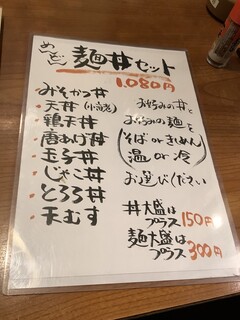 めんどん
麺丼セット
1,080円
みそかつ丼
・天丼(小海老)
・鶏天丼
・唐あげ丼
・玉子丼
・じゃこ丼
・とろろ丼
・天むす
お好みの丼と
お好みの麺を
(そば or きしめん)
(温 or 冷)
お選びください
丼大盛は
プラス150円
麺大盛は
プラス300円